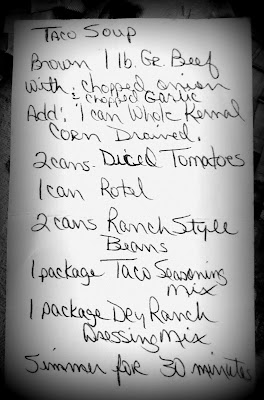 Taco Soup
Brown 1 lb. Gr. Beef
with chopped onion
& chopped Garlic
Add: 1 can Whole Kernal
Corn Drained.
2 cans. Diced Tomatoes
1 can Rotel
2 cans Ranch Style
Beans
1 package Taco Seasoning
Mix
1 package Dry Ranch
Dressing Mix
Simmer for 30 minutes